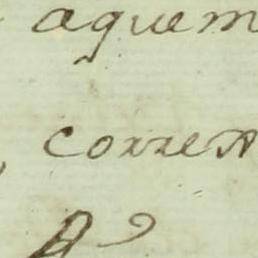 aquem
corren